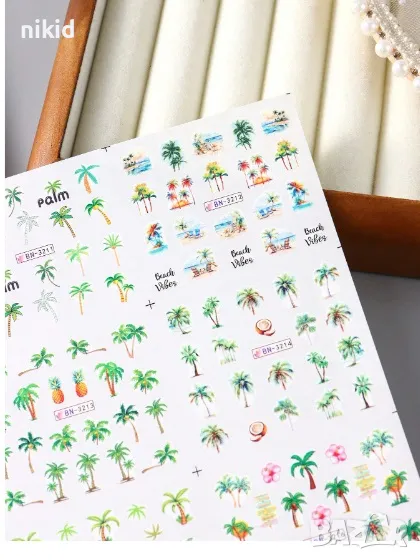 nikid
palm
BN-3211
BN-3212
Beach
Vibes
Beach
Vibes
BN-3213
BN-3214
BAZAR